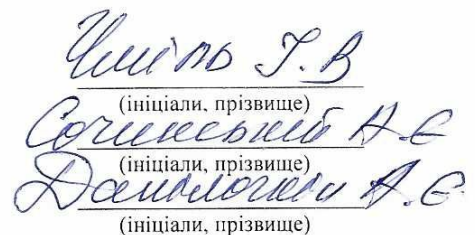 Чміль І.В
(ініціали, прізвище)
Сочинський А.Є
(ініціали, прізвище)
А.Є.
(ініціали, прізвище)